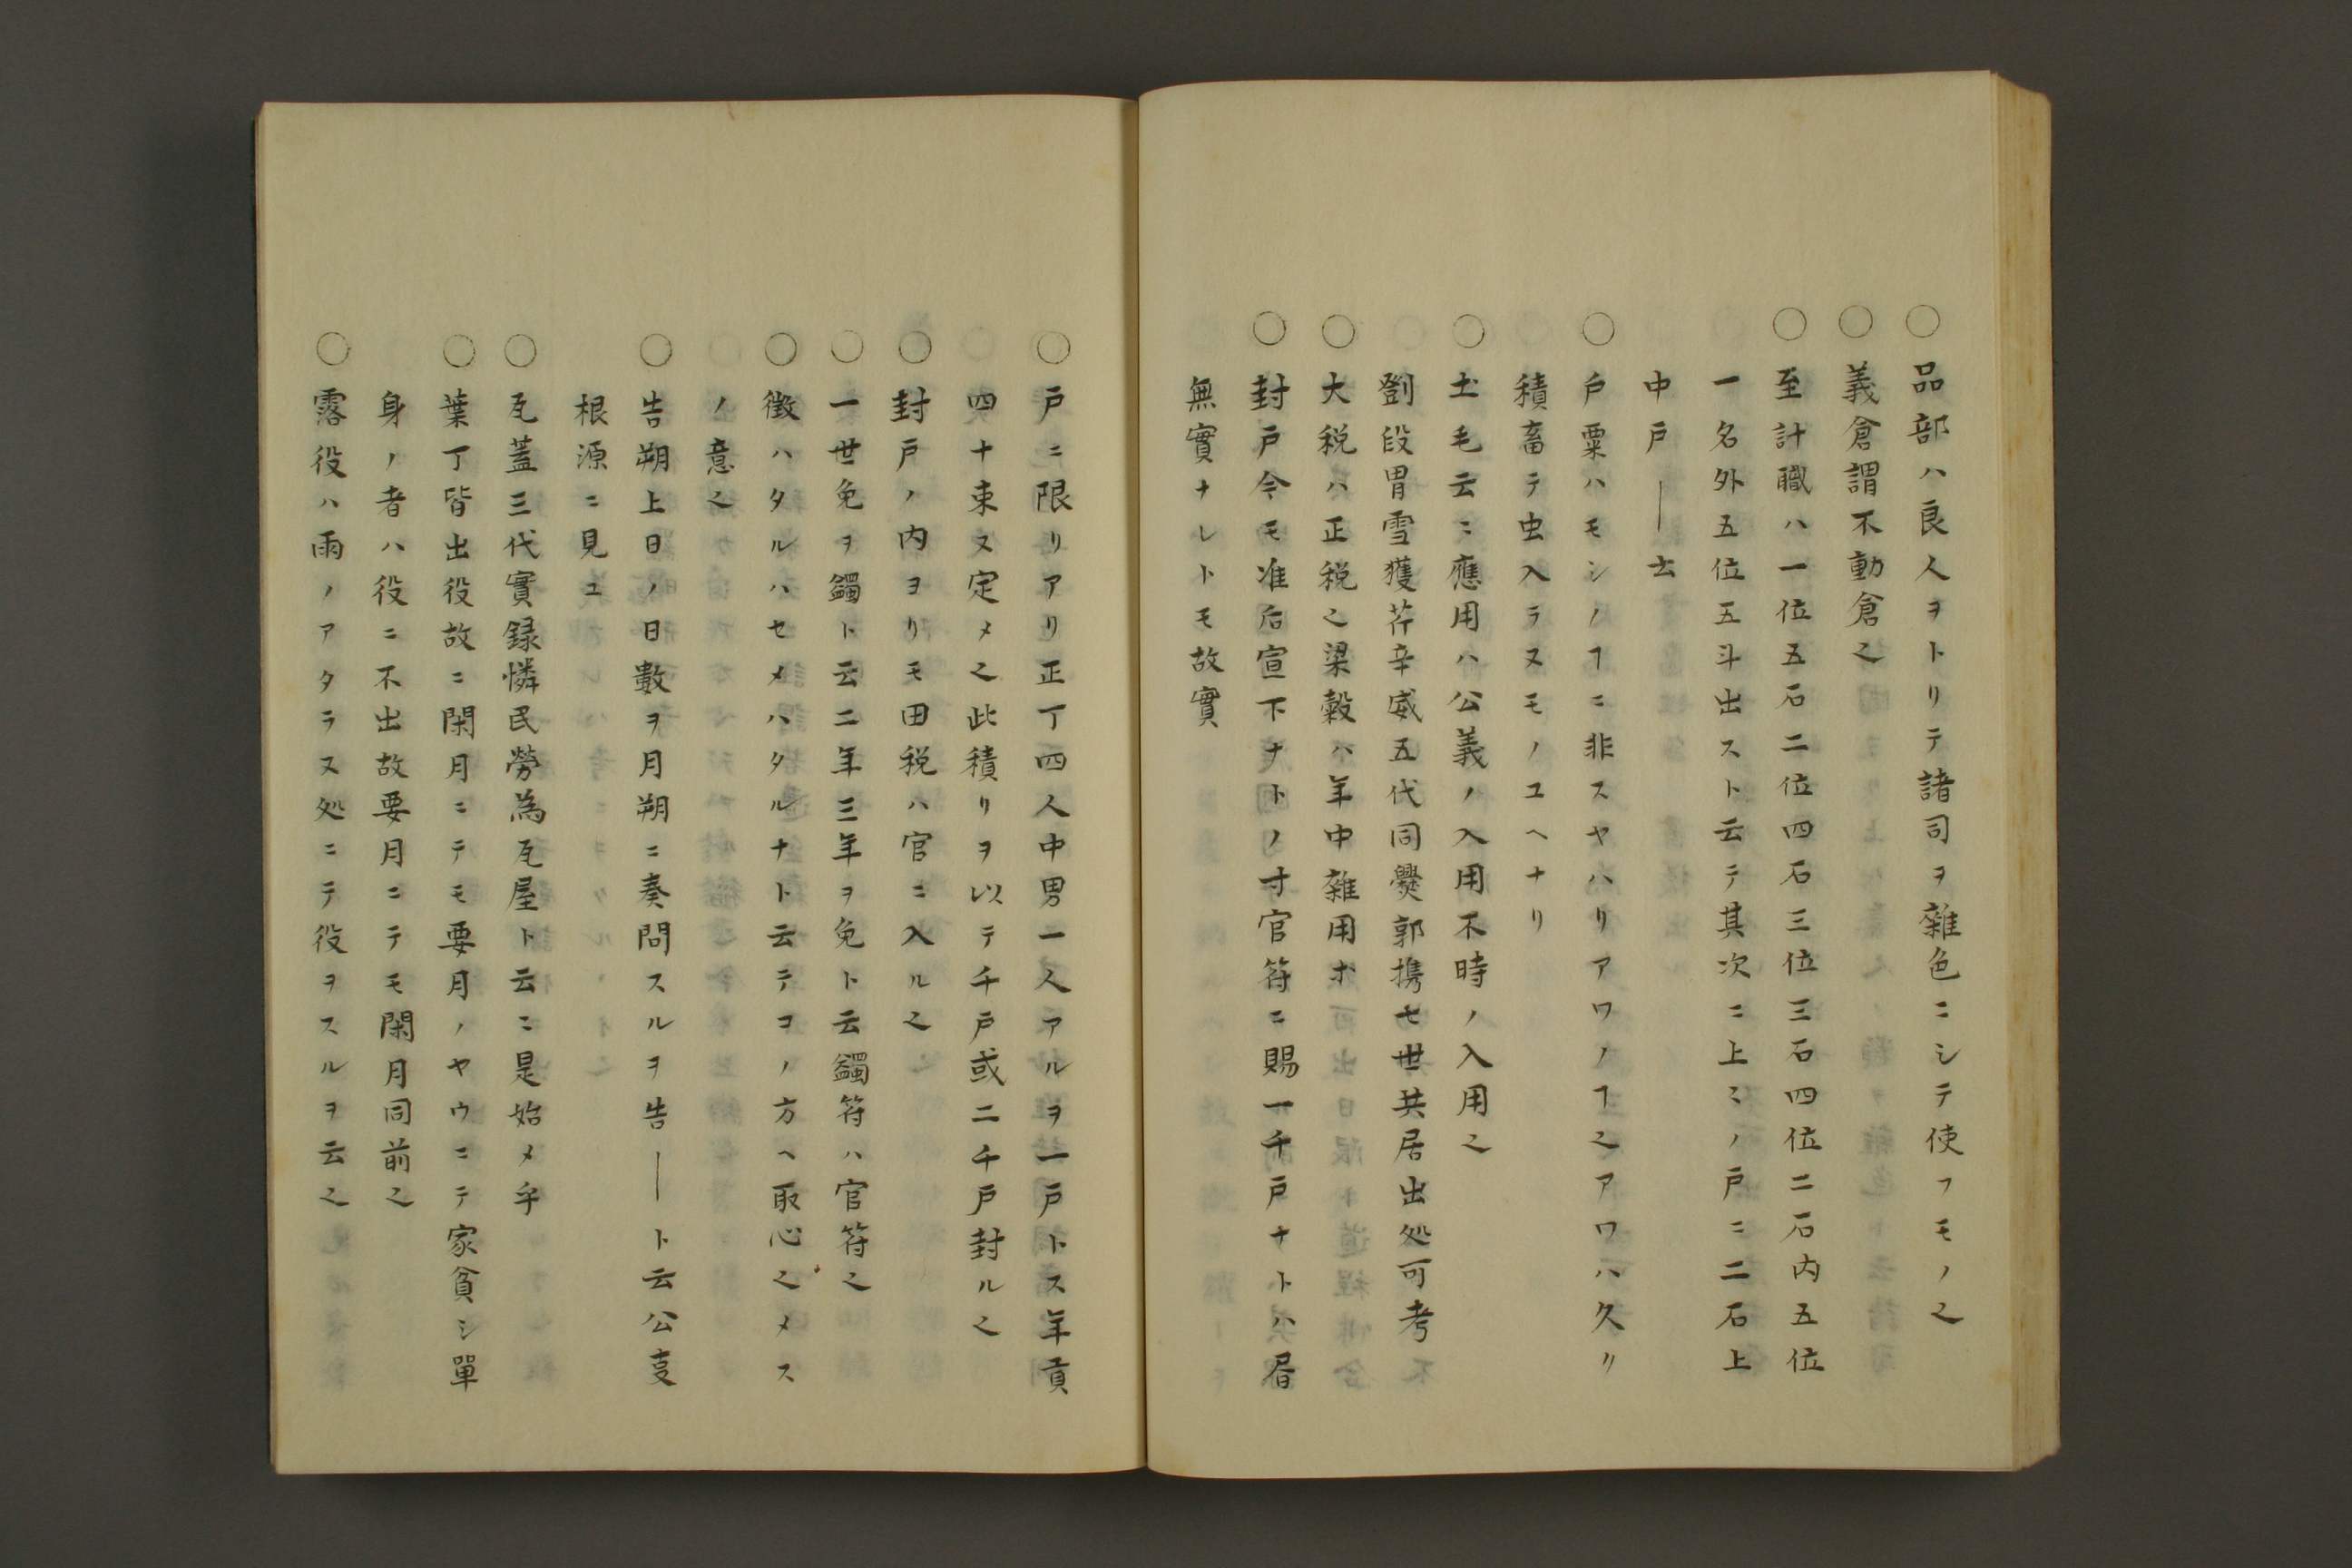 ○品部ハ良人ヲトリテ諸司ヲ雜色ニシテ使フモノ之
○義倉謂不動倉之
○至計職ハ一位五石二位四石三位三石四位二石内五位
一名外五位五斗出スト云テ其次ニ上ミノ戸ニ二石上
中戸――士
○戸粟ハモシノヿニ非スヤハリアワノヿ之アワハ久リ
積畜テ虫入ラヌモノユヘナリ
○土毛云ニ應用ハ公義ノ入用不時ノ入用之
劉段胃雪獲芥辛威五代同爨郭携七世共居出処可考
○大税ハ正税之梁穀ハ年中雜用ホ
○封戸今モ准后宣下ナトノ寸官符ニ賜一千戸ナトハ㫺
無實ナレトモ故實
○戸ニ限リアリ正丁四人中男一人アルヲ一戸トス年貢
四十束ヌ定メ之此積リヲ以テ千戸或二千戸封ル之
○封戸ノ内ヨリモ田税ハ官ニ入ル之
○一世免ヲ蠲ト云二年三年ヲ免ト云蠲符ハ官符之
○徴ハタルハセメハタルナト云テコノ方ヘ取心之メス
ノ意之
○告朔上日ノ日數ヲ月朔ニ奏問スルヲ告――ト云公㕝
根源ニ見ユ
○瓦蓋三代實録憐民勞為瓦屋ト云ニ是始メ乎
○葉丁皆出役故ニ閑月ニテモ要月ノヤウニテ家貧シ單
身ノ者ハ役ニ不出故要月ニテモ閑月同前之
○露役ハ雨ノアタラヌ処ニテ役ヲスルヲ云之